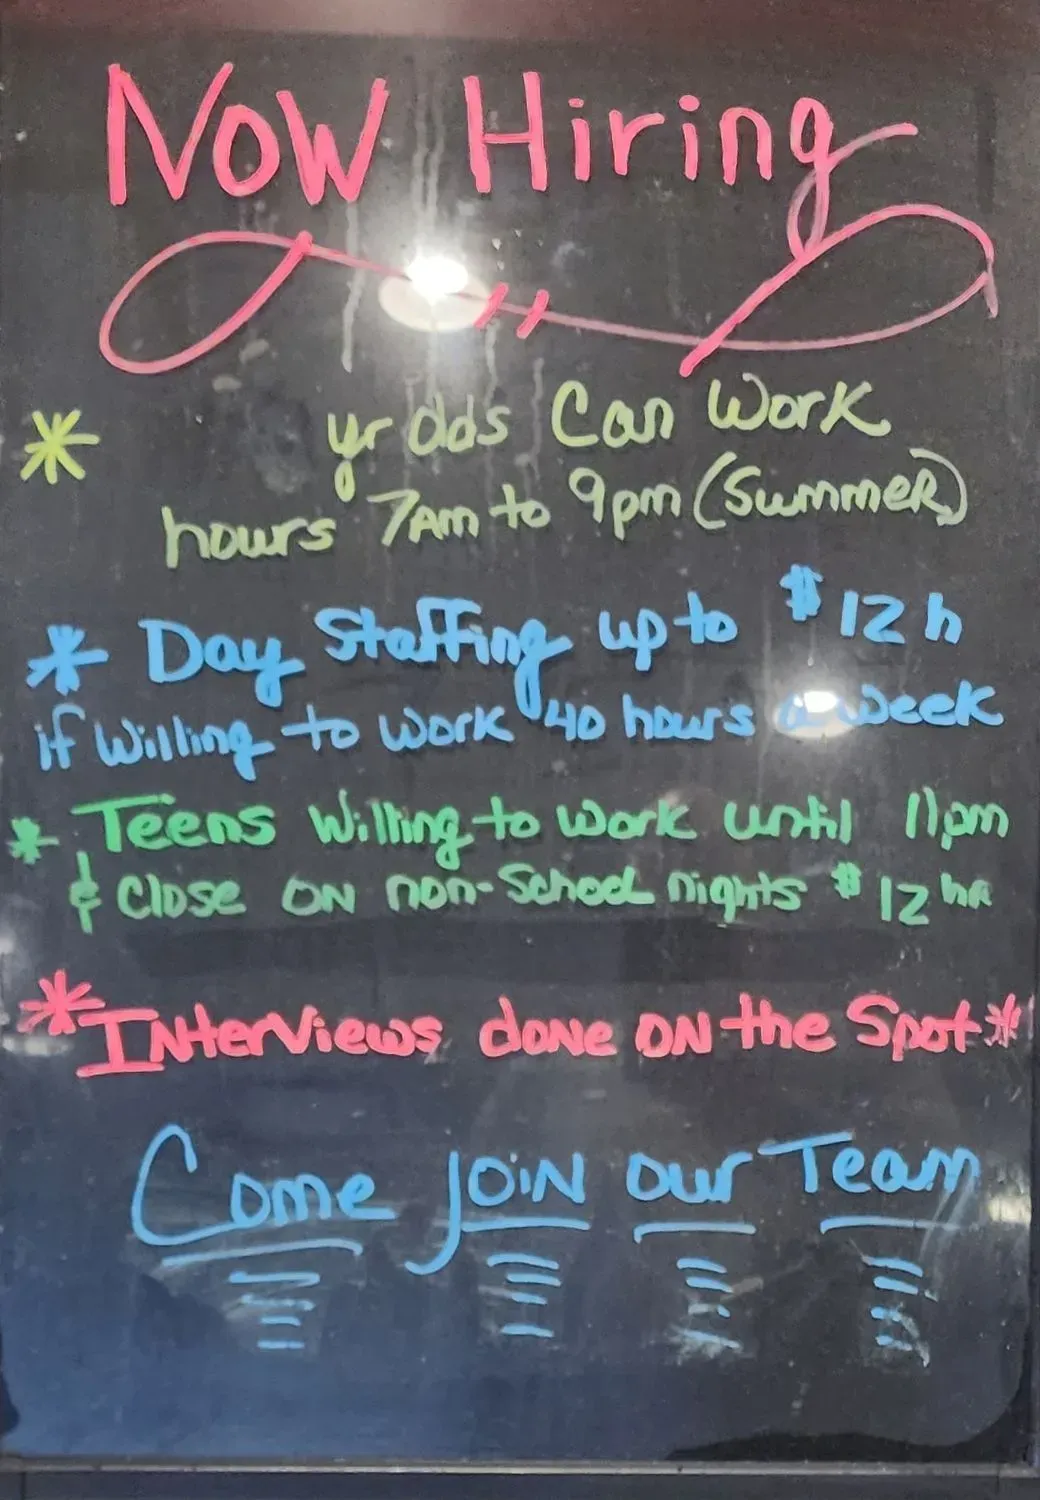 Now Hiring
* yr olds Can Work
hours 7am to 9pm (Summer)
* Day Staffing up to $12 h
if willing to work 40 hours a week
* Teens willing to work until 11pm
& Close on non-School nights $12 hr
* Interviews done on the Spot *
Come Join our Team